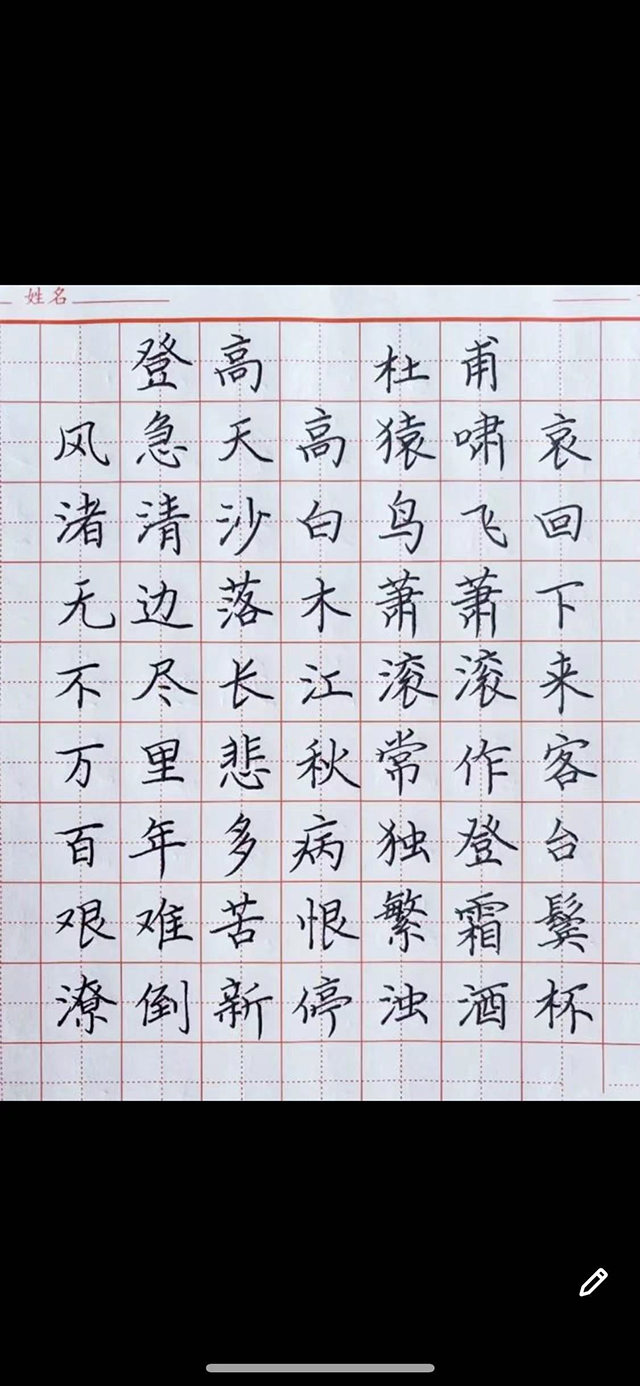 姓名
登高 杜甫
风急天高猿啸哀
渚清沙白鸟飞回
无边落木萧萧下
不尽长江滚滚来
万里悲秋常作客
百年多病独登台
艰难苦恨繁霜鬓
潦倒新停浊酒杯